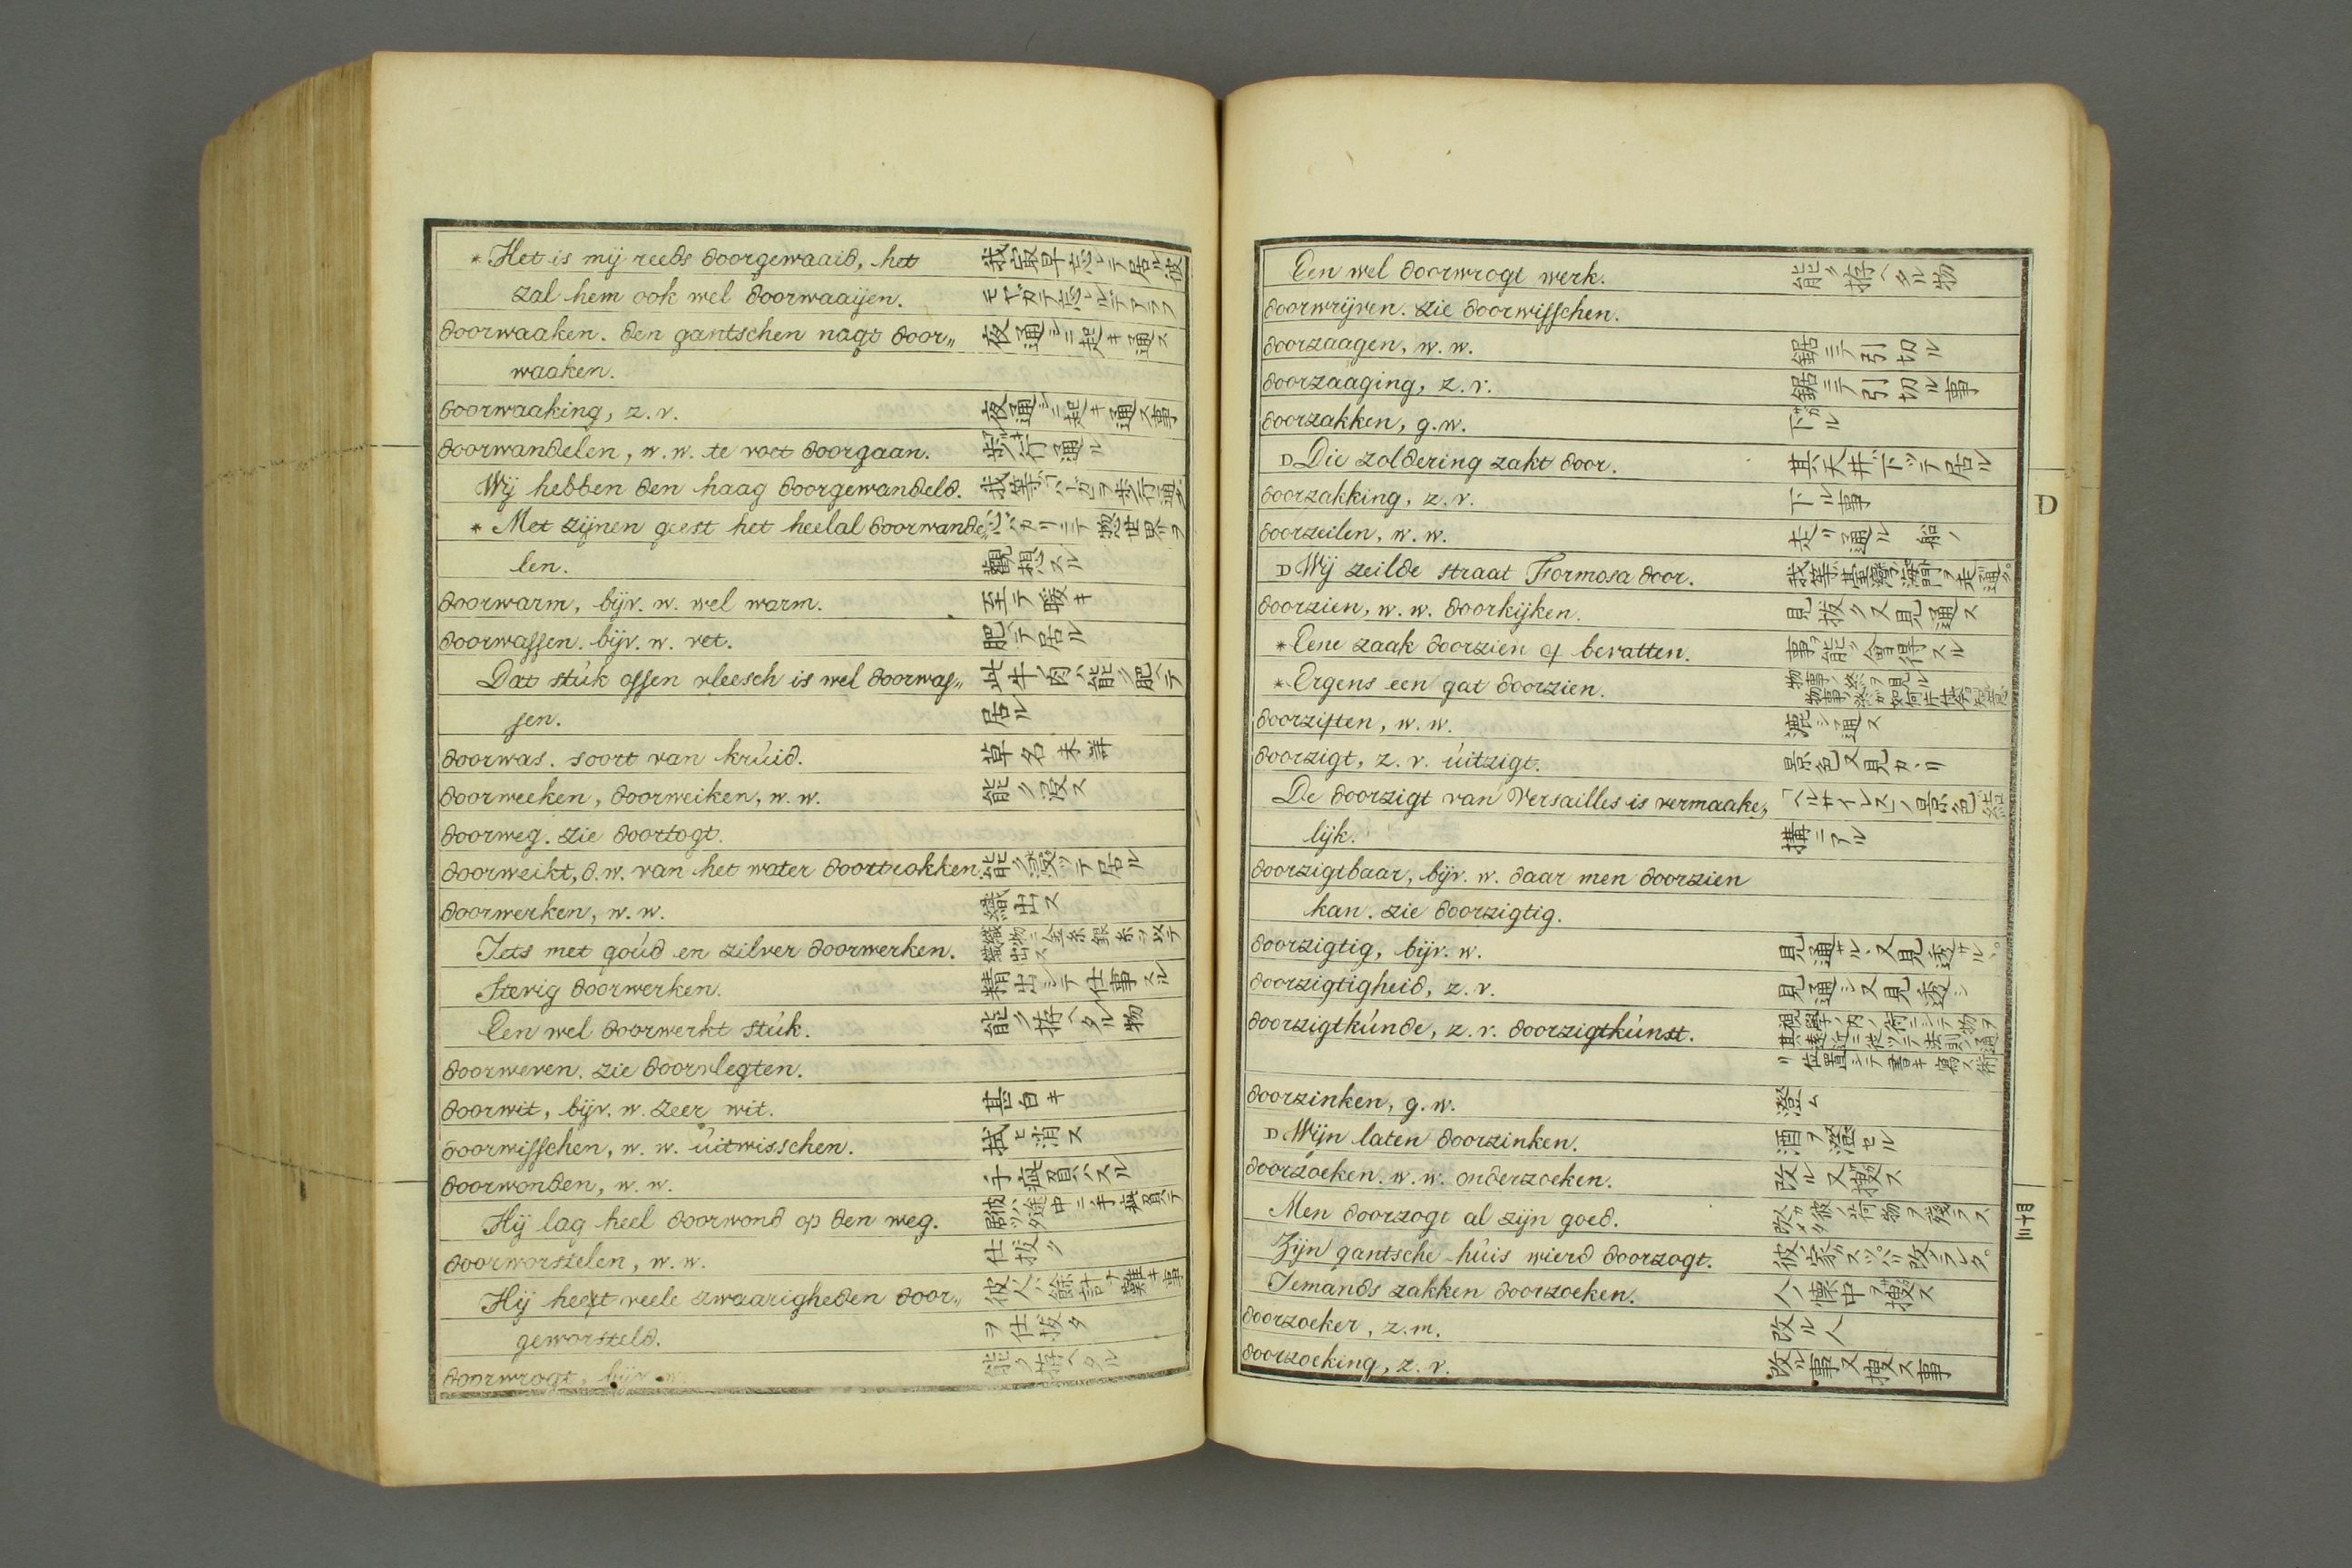 * Het is mij reeds doorgewaaid, het 我最早忘レテ居ル彼
zal hem ook wel doorwaaijen. モヤガテ忘ルデアラフ
doorwaaken. den gantschen nagt door„ 夜通シニ起キ通ス
waaken.
doorwaaking, z. v. 夜通シニ起キ通ス事
doorwandelen, w. w. te voet doorgaan. 歩行通ル
Wij hebben den haag doorgewandeld. 我等
* Met zijnen geest het heelal doorwande„ 心バカリニテ惣世界ヲ
len. 観想スル
doorwarm, bijv. w. wel warm. 至テ暖キ
doorwassen. bijv. w. vet. 肥テ居ル
Dat stúk ossen vleesch is wel doorwas„ 此牛ノ肉ハ能ク肥テ
sen. 居ル
doorwas. soort van krúid. 草名未詳
doorweeken, doorweiken, w. w. 能ク浸ス
doorweg. zie doortogt.
doorweikt, d. w. van het water doortrokken 能ク浸ッテ居ル
doorwerken, w. w. 織出ス
Iets met goúd en zilver doorwerken. 織物ニ金糸銀糸ヲ以テ織出ス
Stevig doorwerken. 精出シテ仕事スル
Een wel doorwerkt stúk. 能ク拵ヘタル物
doorweven. zie doorvlegten.
doorwit, bijv. w. zeer wit. 甚白キ
doorwisschen, w. w. úitwisschen. 拭ヒ消ス
doorwonden, w. w. 手疵負ハスル
Hij lag heel doorwond op den weg. 彼ハ途中ニ手疵負テ居ッタ
doorworstelen, w. w. 仕抜ク
Hij heeft veele zwaarigheden door„ 彼人ハ餘計ノ難キ事
geworsteld. ヲ仕抜タ
doorwrogt, bijv. w. 能ク拵ヘタル
Een wel doorwrogt werk. 能ク拵ヘタル物
doorwrijven. zie doorwisschen.
doorzaagen, w. w. 鋸ニテ引切ル
doorzaaging, z. v. 鋸ニテ引切ル事
doorzakken, g. w. 下ル
D Die zoldering zakt door. 其天井下ッテ居ル
doorzakking, z. v. 下ル事
doorzeilen, w. w. 走リ通ル 船ノ
D Wij zeilde straat Formosa door. 我等臺灣ノ海門ヲ走通ツタ
doorzien, w. w. doorkijken. 見抜ク又見通ス
* Eene zaak doorzien of bevatten. 事ヲ能ク會得スル
* Ergens een gat doorzien. 物事ノ終ヲ見ル
doorziften, w. w. 漉シ通ス
doorzigt, z. v. úitzigt. 景色又見カヽリ
De doorzigt van Versailles is vermaake„ 「ヘルサイレス」ノ景色結
lijk. 構ニアル
doorzigtbaar, bijv. w. daar men doorzien
kan. zie doorzigtig.
doorzigtig, bijv. w. 見通サルヽ又見透サルヽ
doorzigtigheid, z. v. 見通シ又見透シ
doorzigtkúnde, z. v. doorzigtkúnst. 視學ノ内ノ術ニシテ物ヲ其遠近ニ従ッテ法則ノ通
リ位置シテ書キ寫ス術
doorzinken, g. w. 澄ム
D Wijn laten doorzinken. 酒ヲ澄セル
doorzoeken. w. w. onderzoeken. 改ル又捜ス
Men doorzogt al zijn goed. 彼ノ荷物ヲ残ラス改メタ
Zijn gantsche húis wierd doorzogt. 彼ノ家ガスッパリ改ラレタ
Iemands zakken doorzoeken. 人ノ懐中ヲ捜ス
doorzoeker, z. m. 改ル人
doorzoeking, z. v. 改ル事又捜ス事
D